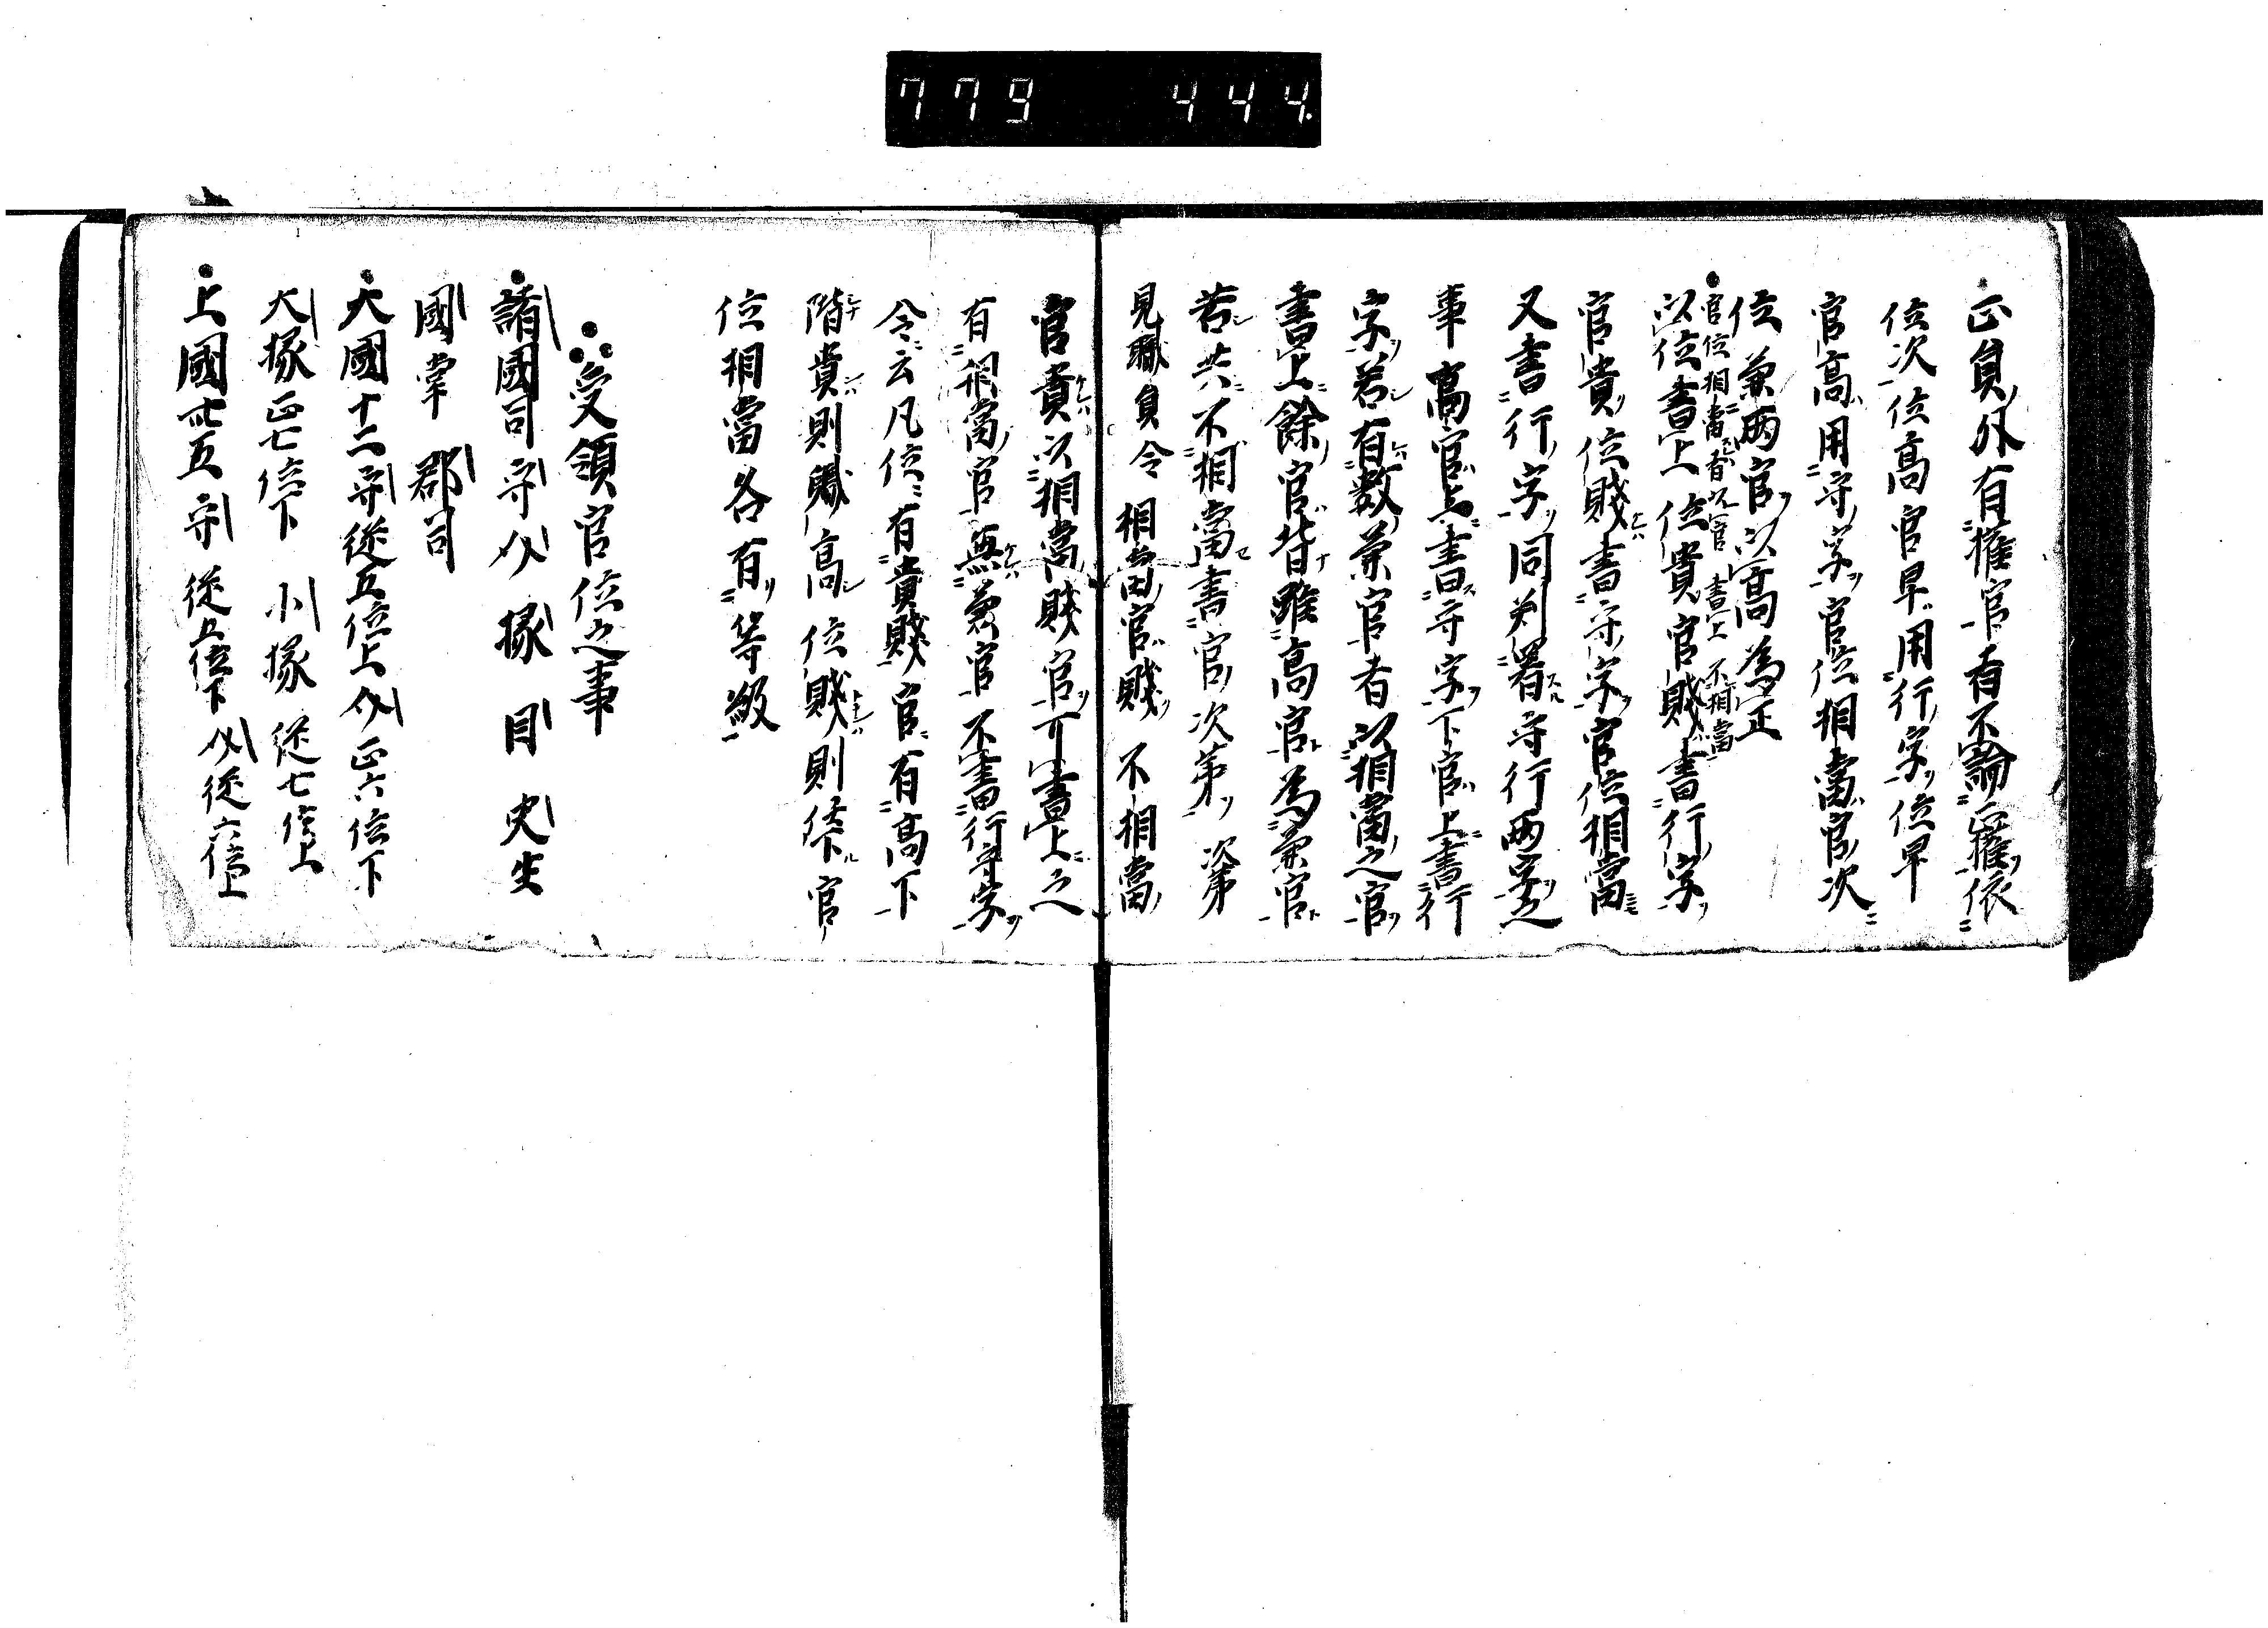 779 444
正員外有権官者不論正権依
位次位高官卑用行字位卑
官高用守字官位相當官次
位兼両官以高為正
官位相當者以官書上不相當
以位書上位貴官賤書行字
官貴位賤書守字官位相當
又書行字同判署守行両字之
事高官上書守字下官上書行
字若有数兼官者以相當之官
書上餘官皆雖高官為兼官
若共不相當書官次第次第
見職員令相當官賤不相當
官貴以相當賤官可書上之
有相當官無兼官不書行守字
令云凡位有貴賤官有高下
階貴則職高位賤則任下官
位相當各有等級
受領官位之事
諸國司守介掾目史生
國掌郡司
大國十二守従五位上介正六位下
大掾正七位下小掾従七位上
上國卅五守従五位下介従六位上